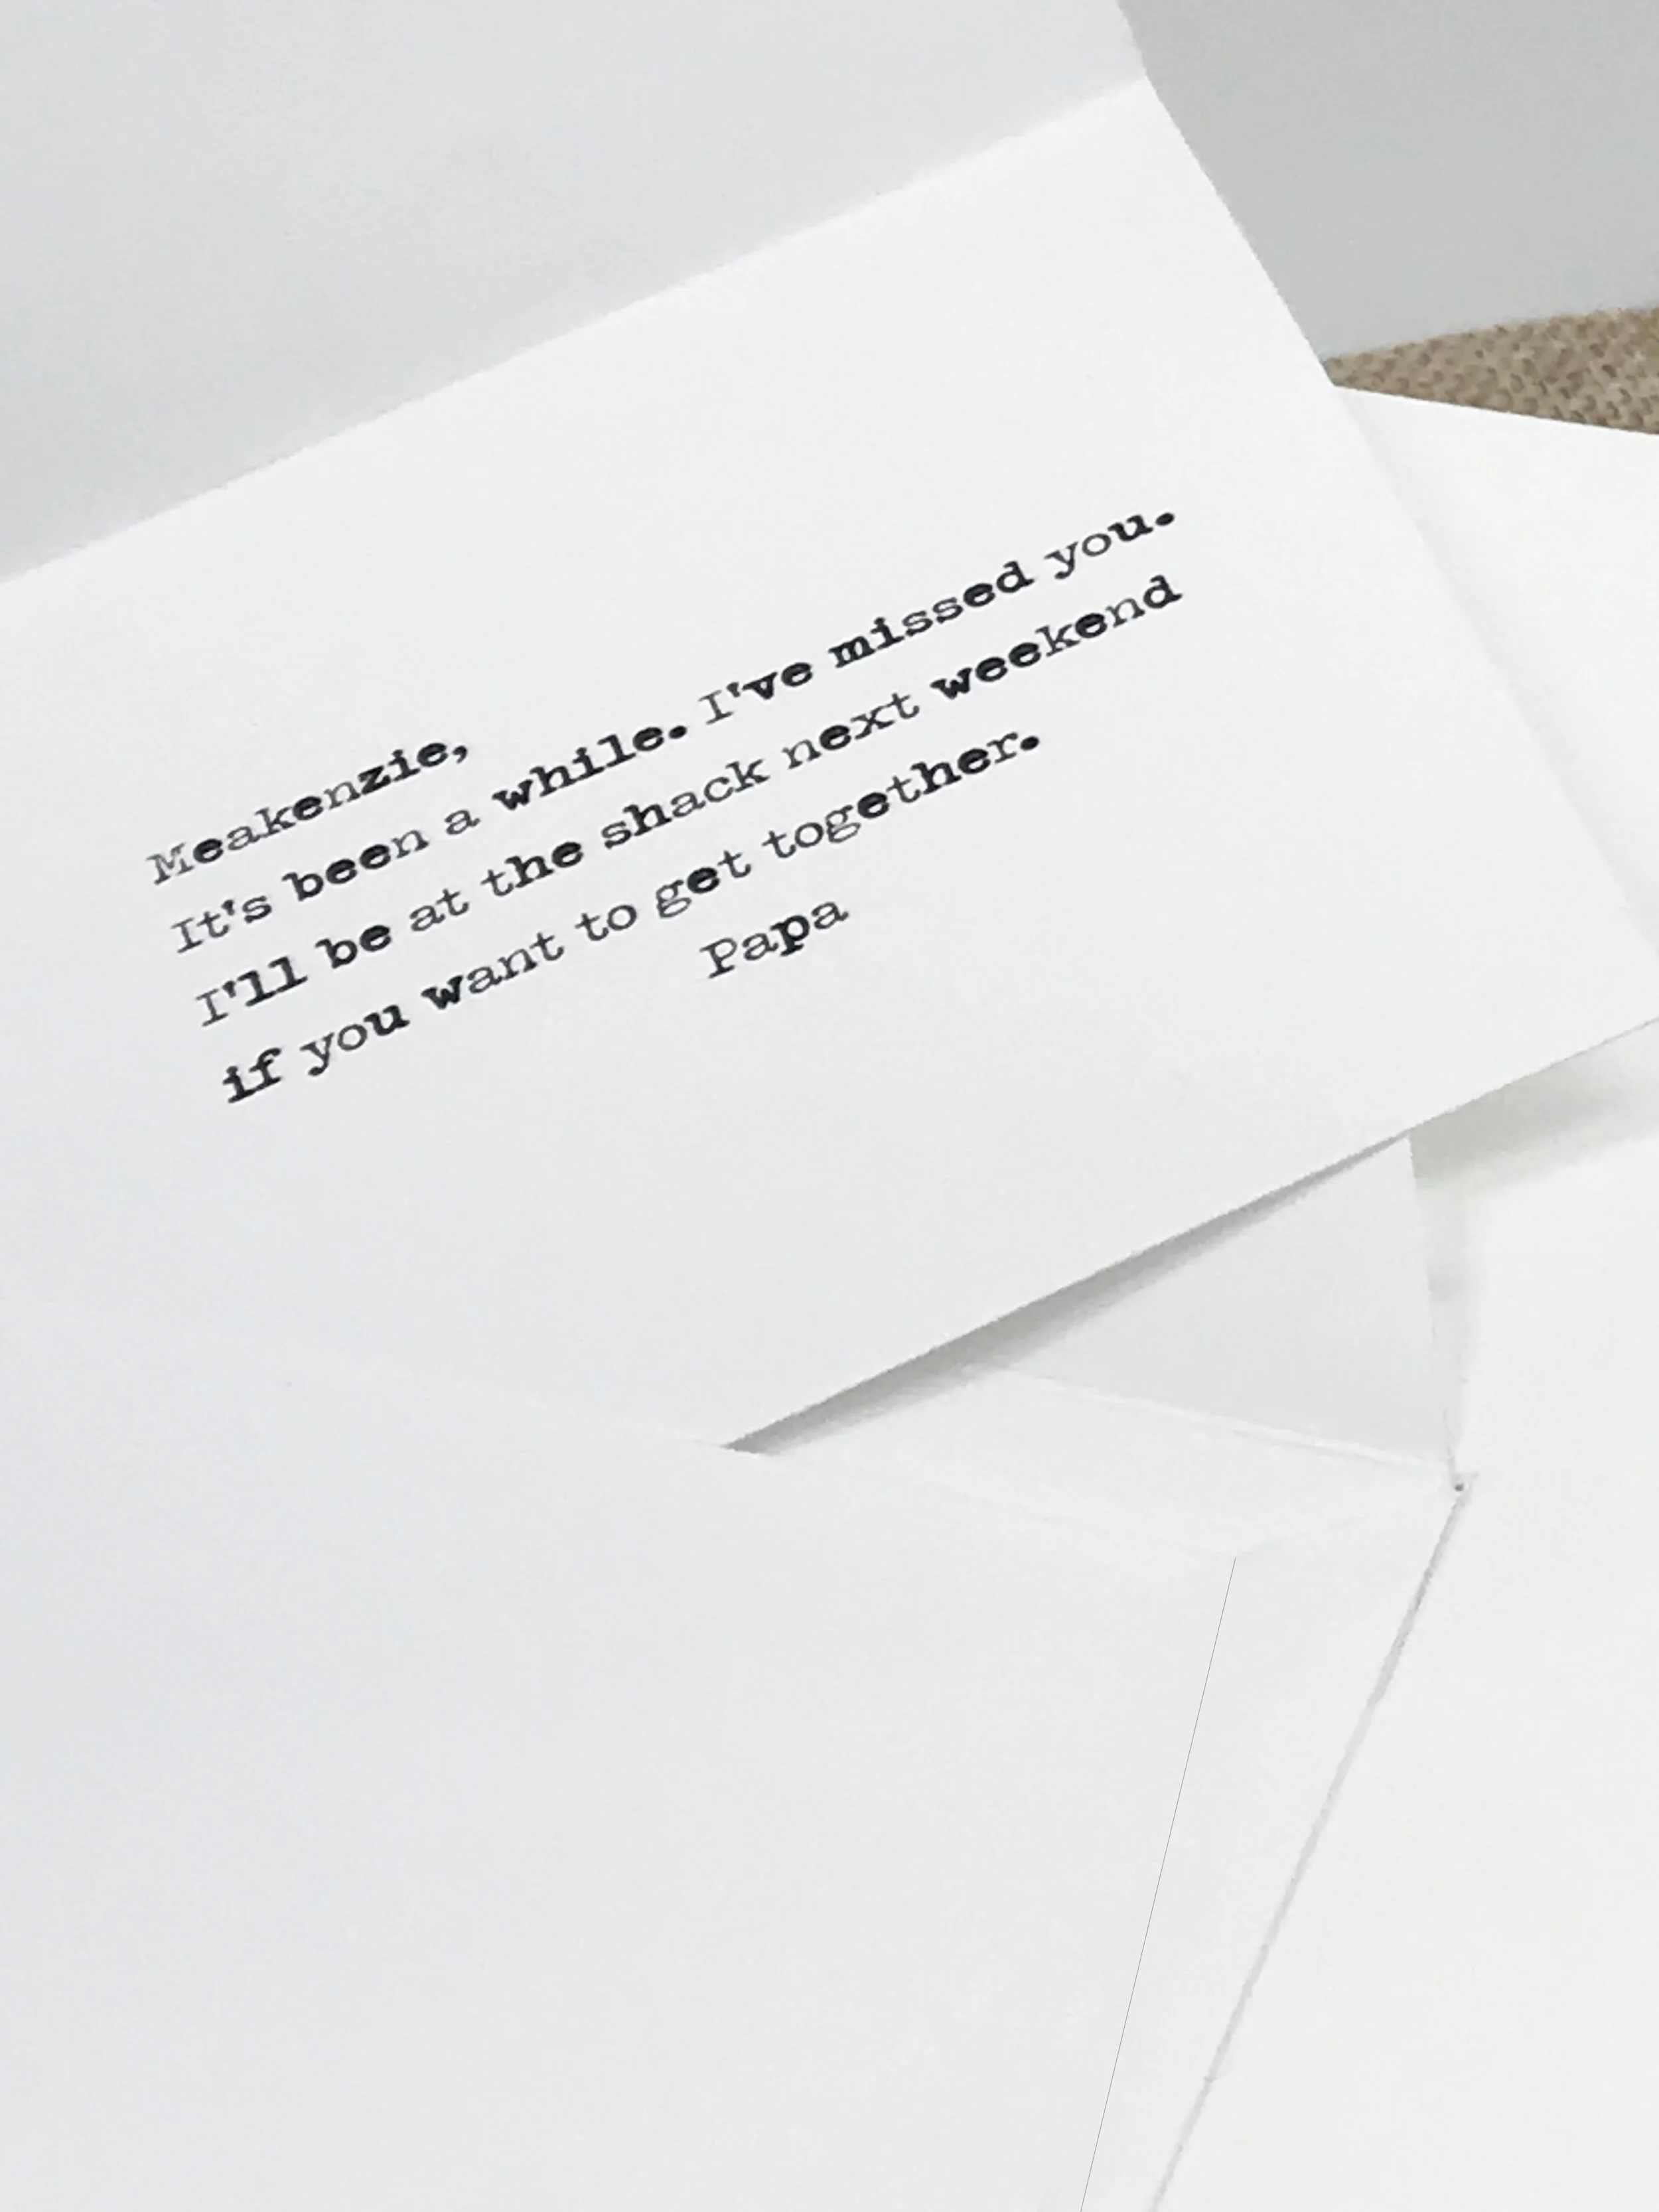 Meakenzie,
It's been a while. I've missed you.
I'll be at the shack next weekend
if you want to get together.
Papa